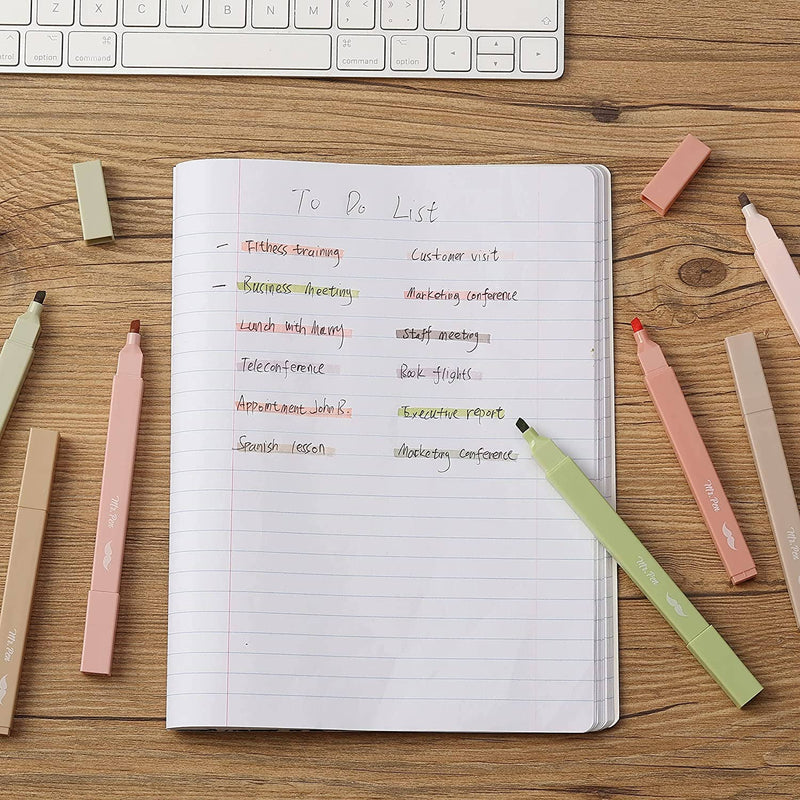 Z X C V B N M < , > . ? /
control option command command option
To Do List
– Fithess training
Customer visit
– Business Meetiny
Marketing conference
Lunch with Marry
Staff meeting
Teleconference
Book flights
Appointment John B.
Executive report
Spanish lesson
Marketing conference
Mr. Pen
Mr. Pen
Mr. Pen
Mr. Pen
Mr. Pen